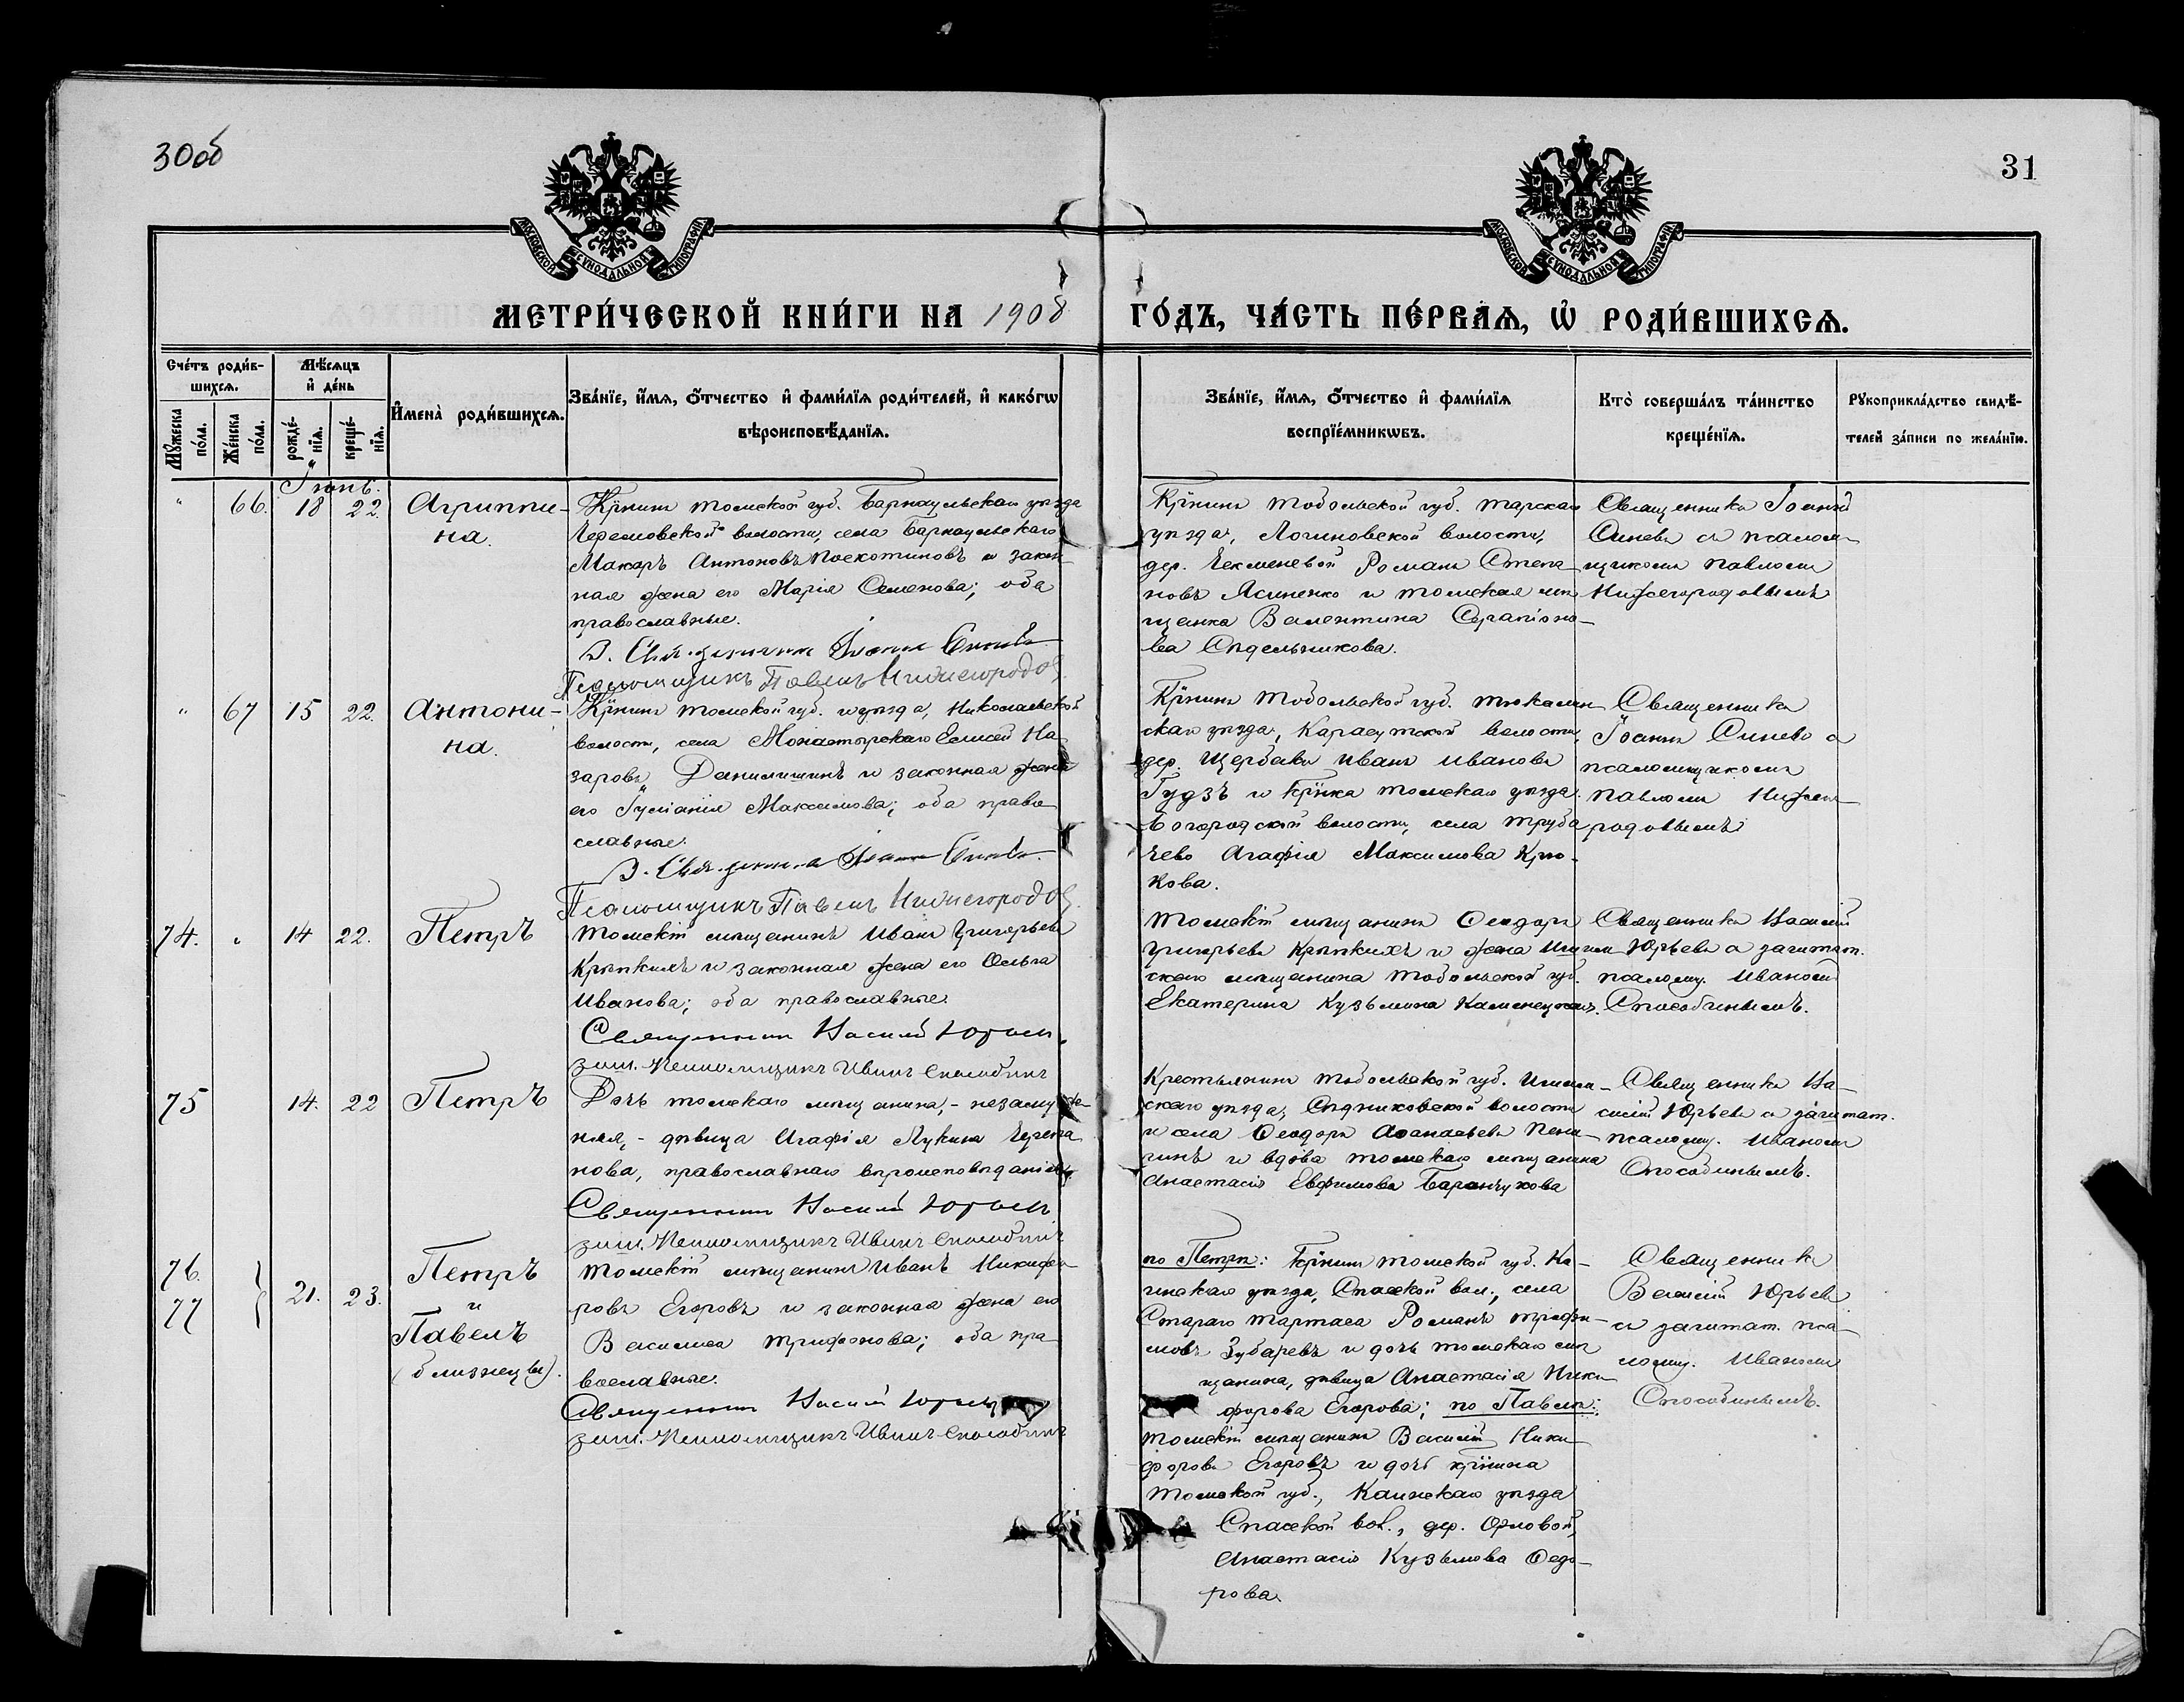 30об
31
МОСКОВСКОЙ СѴНОДАЛЬНОЙ ТИПОГРАФІИ
МОСКОВСКОЙ СѴНОДАЛЬНОЙ ТИПОГРАФІИ
МЕТРИ́ЧЕСКОЙ КНИ́ГИ НА 1908
ГО́ДЪ, ЧА́СТЬ ПЕ́РВАѦ, Ѿ РОДИ́ВШИХСѦ.
Сче́тъ роди́в-
шихсѧ.
Мꙋ́жеска по́ла.
Же́нска по́ла.
Мѣ́сѧцъ
и҆ де́нь
рожде́-нїѧ.
креще́-нїѧ.
И҆мена̀ роди́вшихсѧ.
Зва́нїе, и҆́мѧ, ѻ҆́тчество и҆ фами́лїѧ роди́телей, и҆ како́гѡ
вѣроисповѣ́данїѧ.
Зва́нїе, и҆́мѧ, ѻ҆́тчество и҆ фами́лїѧ
воспрїе́мникѡвъ.
Кто̀ соверша́лъ та́инство
креще́нїѧ.
Рꙋкоприкла́дство свидѣ́-
телей за́писи по жела́нїю.
Іюнь.
" 66. 18 22.
Агриппи-
на.
Кр͠нинъ Томской губ. Барнаульскаго уѣзда
волости, села Барнаульскаго
Макаръ Антоновъ Поскотиновъ и закон-
ная жена его Марія Семенова; оба
православные.
З. Священникъ Іоаннъ Синевъ
Псаломщикъ Павелъ Нижегородовъ
Кр͠нинъ Тобольской губ. Тарскаго
уѣзда, Логиновской волости,
дер. Чекменевой Романъ Степа-
новъ Ясиненко и томская мѣ-
щанка Валентина Серапіоно-
ва Сидельникова.
Священникъ Іоаннъ
Синевъ съ псалом-
щикомъ Павломъ
Нижегородовымъ
" 67 15 22.
Антони-
на.
Кр͠нинъ Томской губ. и уѣзда, Николаевской
волости, села Монастырскаго Елисей На-
заровъ Данилишинъ и законная жена
его Іуліанія Максимова; оба право-
славные.
З. Священникъ Іоаннъ Синевъ.
Псаломщикъ Павелъ Нижегородовъ.
Кр͠нинъ Тобольской губ. Тюкалин-
скаго уѣзда, Карасукской волости,
дер. Щербаки Иванъ Ивановъ
Гудзъ и кр͠нка Томскаго уѣзда
Богородской волости, села Труба-
чево Агафія Максимова Крю-
кова.
Священникъ
Іоаннъ Синевъ съ
псаломщикомъ
Павломъ Нижего-
родовымъ
74. " 14 22.
Петръ
Томскій мѣщанинъ Иванъ Григорьевъ
Крѣпкихъ и законная жена его Ольга
Иванова; оба православные.
Священникъ Василій Юрьевъ.
зашт. Псаломщикъ Иванъ Способинъ
Томскій мѣщанинъ Ѳеодоръ
Григорьевъ Крѣпкихъ и жена Ишим-
скаго мѣщанина Тобольской губ.
Екатерина Кузьмина Каменецкая.
Священникъ Василій
Юрьевъ съ заштат.
псаломщ. Иваномъ
Способинымъ.
75 14. 22
Петръ
Дочь томскаго мѣщанина, - незамуж-
няя, - дѣвица Агафія Лукина Черепа-
нова, православнаго вѣроисповѣданія.
Священникъ Василій Юрьевъ
зашт. Псаломщикъ Иванъ Способинъ
Крестьянинъ Тобольской губ. Ишим-
скаго уѣзда, волости
и села Ѳеодоръ Аѳанасьевъ
и вдова томскаго мѣщанина
Анастасія Евфимова Баранчукова
Священникъ Ва-
силій Юрьевъ съ заштат.
псаломщ. Иваномъ
Способинымъ.
76.
77 21. 23.
Петръ
и
Павелъ
(близнецы).
Томскій мѣщанинъ Иванъ Никифо-
ровъ Егоровъ и законная жена его
Василиса Трифонова; оба пра-
вославные.
Священникъ Василій Юрьевъ
зашт. Псаломщикъ Иванъ Способинъ
по Петрѣ: кр͠нинъ Томской губ. Ка-
инскаго уѣзда, Спасской вол., села
Стараго Тартаса Романъ Трофи-
мовъ Зубаревъ и дочь томскаго мѣ-
щанина, дѣвица Анастасія Ники-
форова Егорова; по Павлѣ:
томскій мѣщанинъ Василій Ники-
форовъ Егоровъ и дочь кр͠нина
Томской губ., Каинскаго уѣзда
Спасской вол., дер. Орловой,
Анастасія Кузьмова Ѳедо-
рова.
Священникъ
Василій Юрьевъ
съ заштат. пса-
ломщ. Иваномъ
Способинымъ.